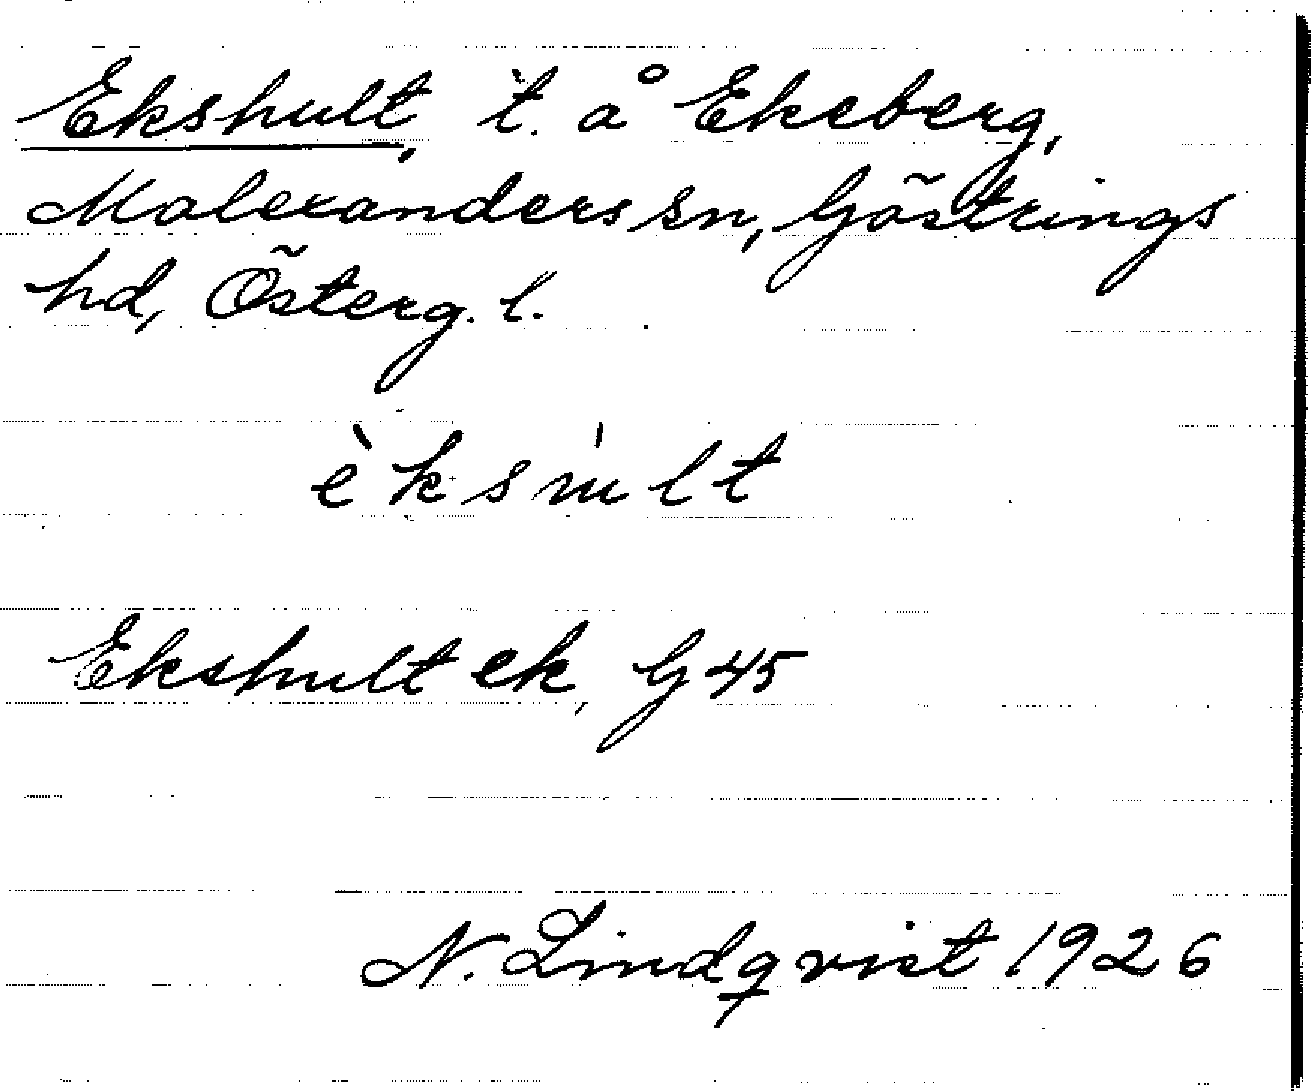 Ekshult, t. å Ekeberg,
Malexanders sn, Göstrings
hd, Österg. l.
Ekshult ek, G 45
N. Lindqvist 1926